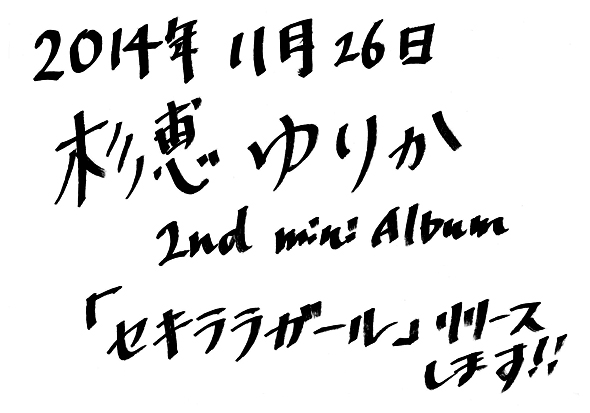 2014年 11月 26日
杉恵ゆりか
2nd mini Album
「セキララガール」リリース
します!!